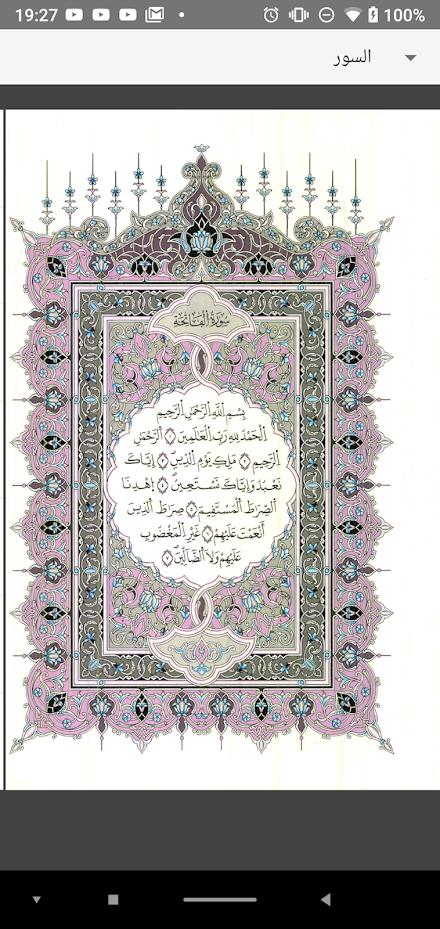 19:27 100%
السور
سُورَةُ الْفَاتِحَةِ
بِسْمِ اللَّهِ الرَّحْمَٰنِ الرَّحِيمِ
اَلْحَمْدُ لِلهِ رَبِّ الْعَٰلَمِينَ ١ اَلرَّحْمَٰنِ
اِلرَّحِيمِ ٢ مَلِكِ يَوْمِ الدِّينِ ٣ إِيَّاكَ
نَعْبُدُ وَإِيَّاكَ نَسْتَعِينُ ٤ إِهْدِنَا
اَلصِّرَٰطَ اَلْمُسْتَقِيمَ ٥ صِرَٰطَ اَلذِينَ
أَنْعَمْتَ عَلَيْهِمْ ٦ غَيْرِ اِلْمَغْضُوبِ
عَلَيْهِمْ وَلَا اَلضَّآلِّينَ ٧